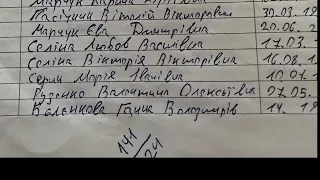 Марчук
Пасічник Віталій Вікторович 30.03.19
Марчук Єва Дмитрівна 20.06.2
Селіна Любов Василівна 17.03.
Селіна Вікторія Вікторівна 16.08.1
Серик Марія Іванівна 10.01.1
Рузенко Валентина Олексіївна 07.05.
Галина Володимирів 14. 19
141
24